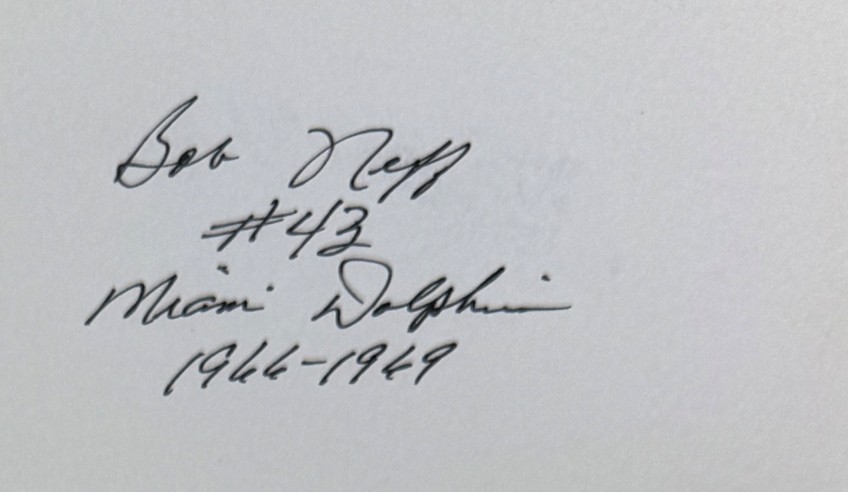 Bob Neff
#43
Miami Dolphin
1966-1969